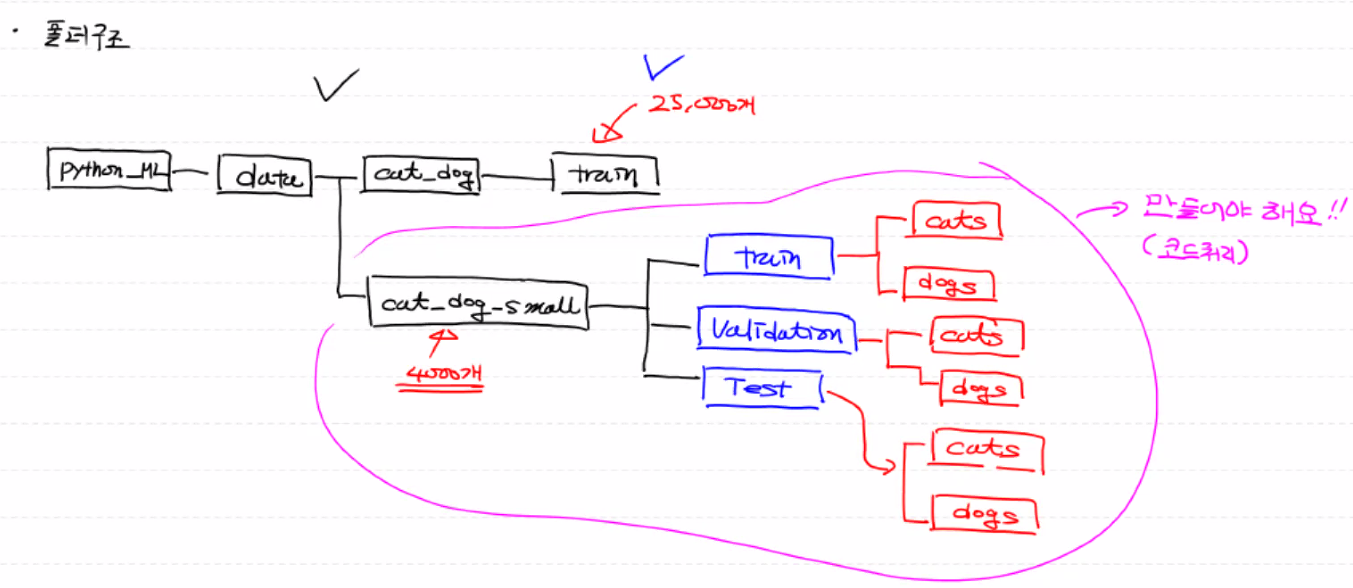 · 폴더구조
25,000개
python_ML
data
cat_dog
train
cat_dog_small
4000개
train
cats
dogs
Validation
cats
dogs
Test
cats
dogs
→ 만들어야 해요!!
(코드처리)